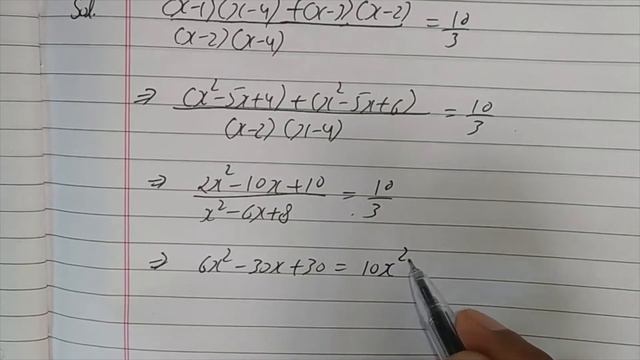 Sol. (x-1)(x-4) + (x-3)(x-2) / (x-2)(x-4) = 10/3
⇒ (x²-5x+4) + (x²-5x+6) / (x-2)(x-4) = 10/3
⇒ 2x²-10x+10 / x²-6x+8 = 10/3
⇒ 6x²-30x+30 = 10x²